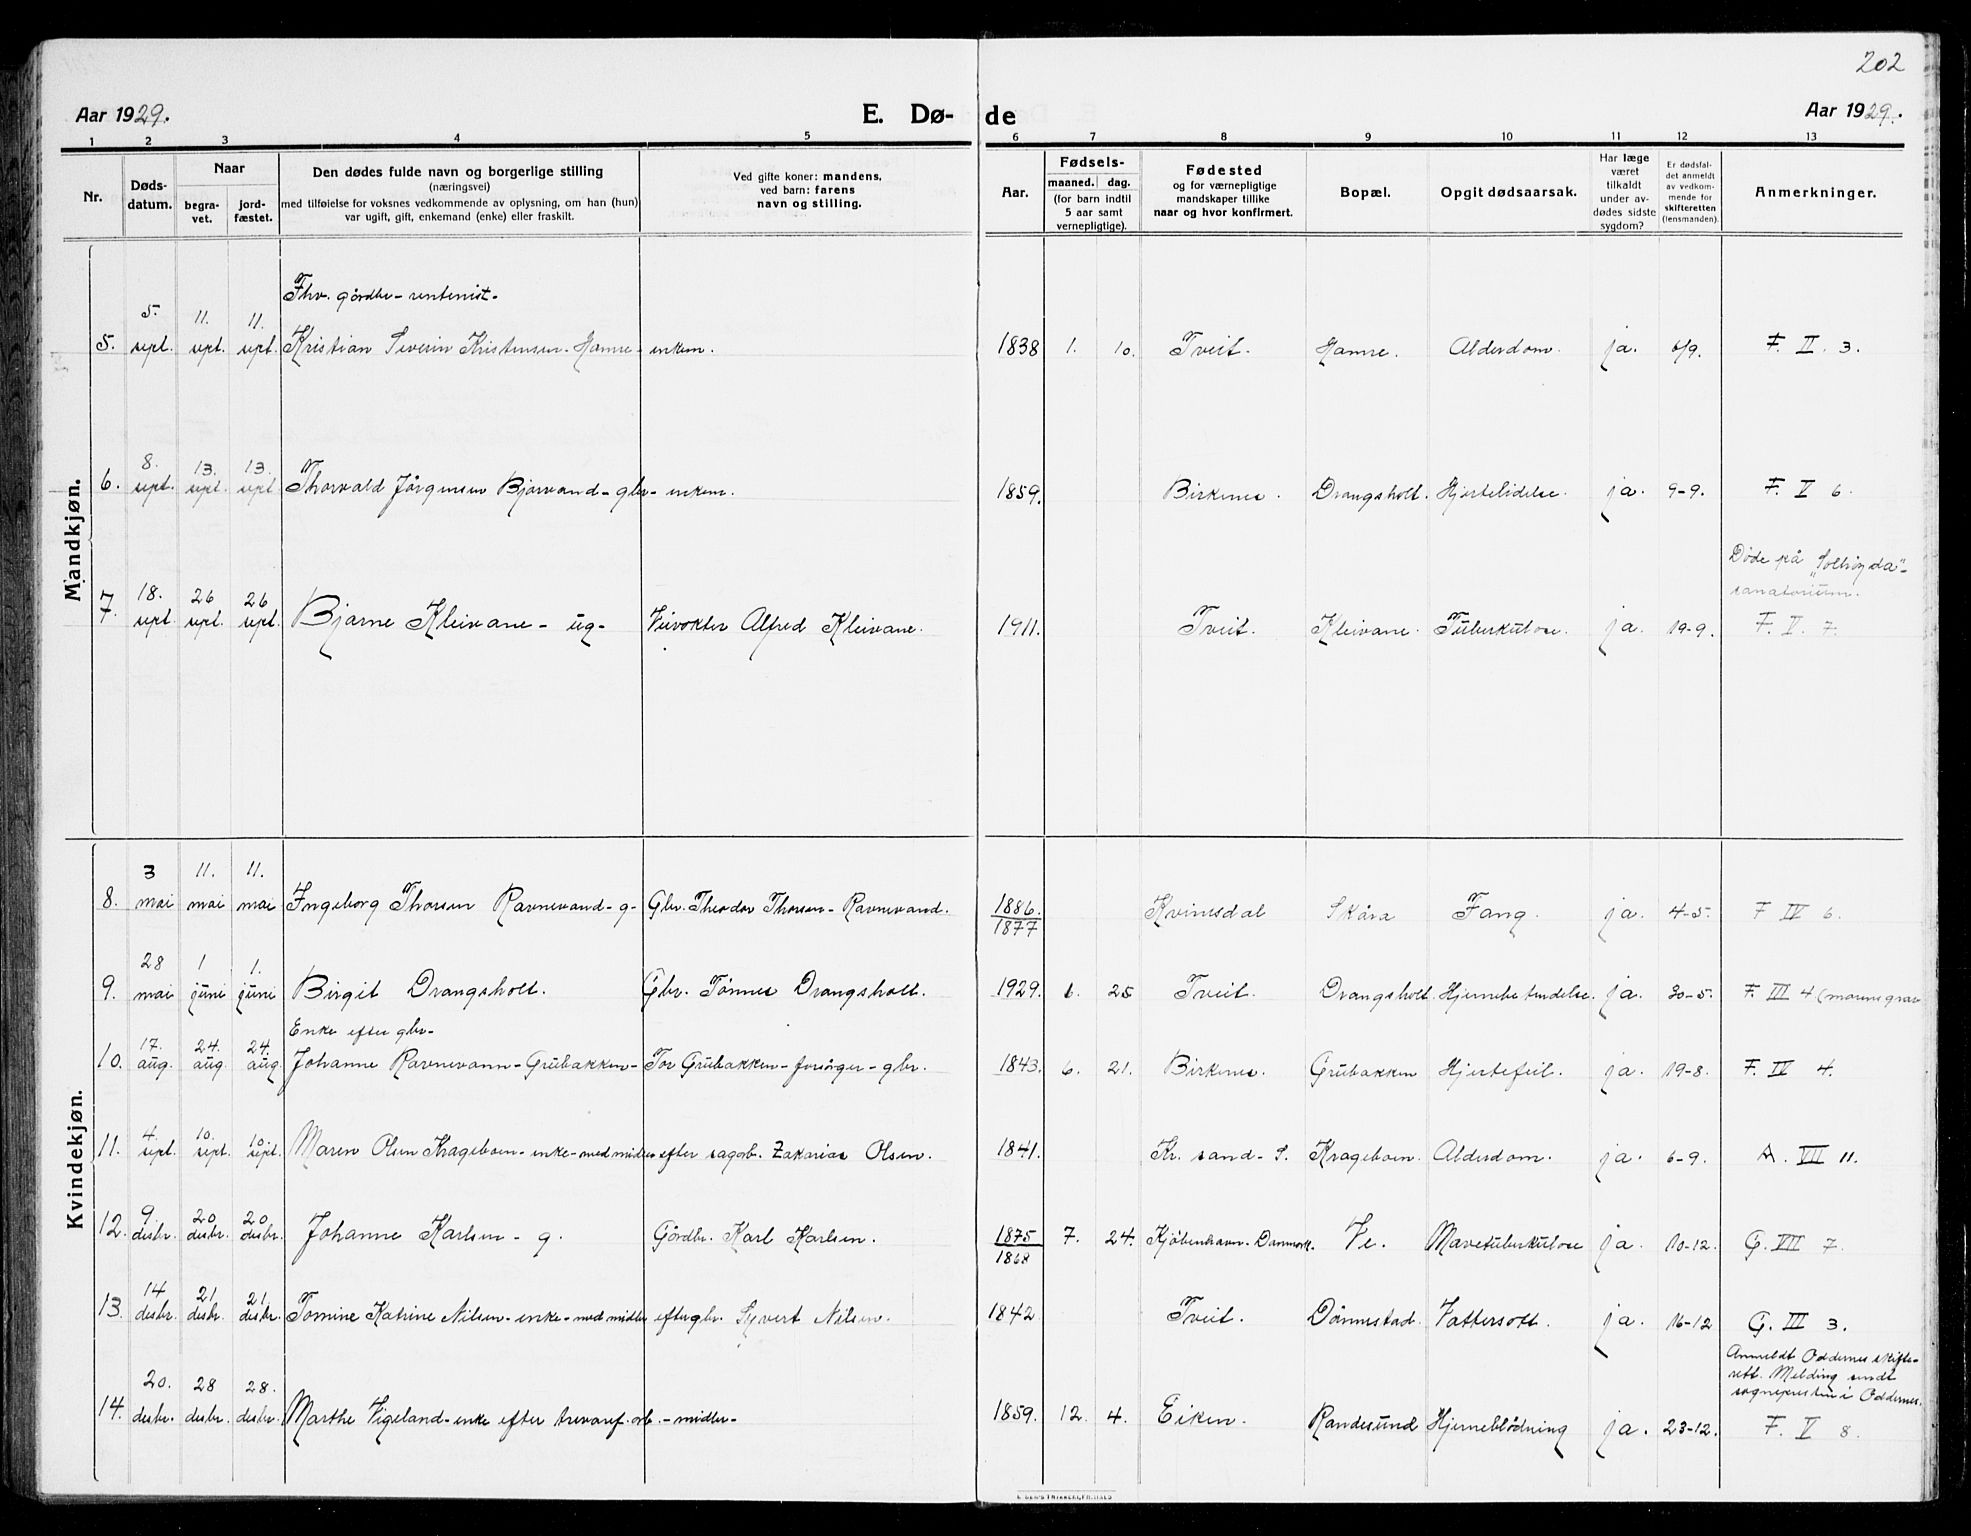 202
Aar 1929. E. Dø- de Aar 1929.
1 2 3 4 5 6 7 8 9 10 11 12 13
Nr. Døds-datum. Naar begra-vet. jord-fæstet. Den dødes fulde navn og borgerlige stilling (næringsvei) med tilføielse for voksnes vedkommende av oplysning, om han (hun) var ugift, gift, enkemand (enke) eller fraskilt. Ved gifte koner: mandens, ved barn: farens navn og stilling. Aar. Fødsels- maaned. dag. (for barn indtil 5 aar samt vernepligtige). Fødested og for værnepligtige mandskaper tillike naar og hvor konfirmert. Bopæl. Opgit dødsaarsak. Har læge været tilkaldt under av-dødes sidste sygdom? Er dødsfal-det anmeldt av vedkom-mende for skifteretten (lensmanden). Anmerkninger.
Mandkjøn.
Fhv. gårdbr - rentenist -
5. 5. sept. 11. sept. 11. sept. Kristian Severin Kristensen - Hamre - enkem. 1838 1. 10. Tveit. Hamre. Alderdom. ja. 6/9. F. II. 3.
6. 8. sept. 13. sept. 13. sept Thorvald Jørgensen Bjorvand - gbr - enkem. 1859. Birkenes. Drangsholt. Hjertelidelse. ja. 9-9. F. V 6.
Døde på "Solhøgda"-
sanatorium.
7. 18. sept. 26 sept. 26 sept. Bjarne Kleivane - ug - Veivokter Alfred Kleivane. 1911. Tveit. Kleivane. Tuberkulose. ja. 19-9. F. V. 7.
Kvindekjøn.
8. 3 mai 11. mai 11. mai Ingeborg Thorsen Ravnevand - g - Gbr. Theodor Thorsen - Ravnevand. 1886. 1877 Kvinesdal Skåra Fang. ja. 4-5. F IV 6.
9. 28 mai 1 juni 1. juni Birgit Drangsholt. Gbr. Tønnes Drangsholt. 1929. 6. 25 Tveit. Drangsholt Hjernebetendelse. ja. 30-5. F. III 4 (morens grav
Enke efter gbr -
10. 17. aug. 24. aug. 24. aug. Johanne Ravnevann - Grubakken - Tor Grubakken - forsørger - gbr. 1843. 6. 21. Birkenes. Grubakken Hjertefeil. ja. 19-8. F. IV 4.
11. 4. sept. 10. sept. 10 sept. Maren Olsen Krageboen - enke - med midler efter sagarb. Zakarias Olsen. 1841. Kr. sand - S. Krageboen. Alderdom. ja. 6-9. A. VII 11.
12. 9. desbr. 20 desbr. 20. desbr. Johanne Karlsen - g. Gårdbr. Karl Karlsen. 1875 1868 7. 24. Kjøbenhavn - Danmark. Ve. Mavetuberkulose ja. 10-12. G. VII 7.
13. 14 desbr. 21. desbr. 21. desbr. Tomine Katrine Nilsen - enke - med midler efter gbr. Syvert Nilsen. 1842 Tveit. Dønnestad. Vattersott. ja. 16-12 G. III 3.
Anmeldt Oddernes skifte-
rett. Melding sendt
sognepresten i Oddernes.
14. 20. desbr. 28 desbr. 28. desbr. Marthe Vigeland - enke efter trevaref. arb. - midler - 1859. 12. 4. Eiken. Randesund Hjerneblødning ja. 23-12. F. V 8.